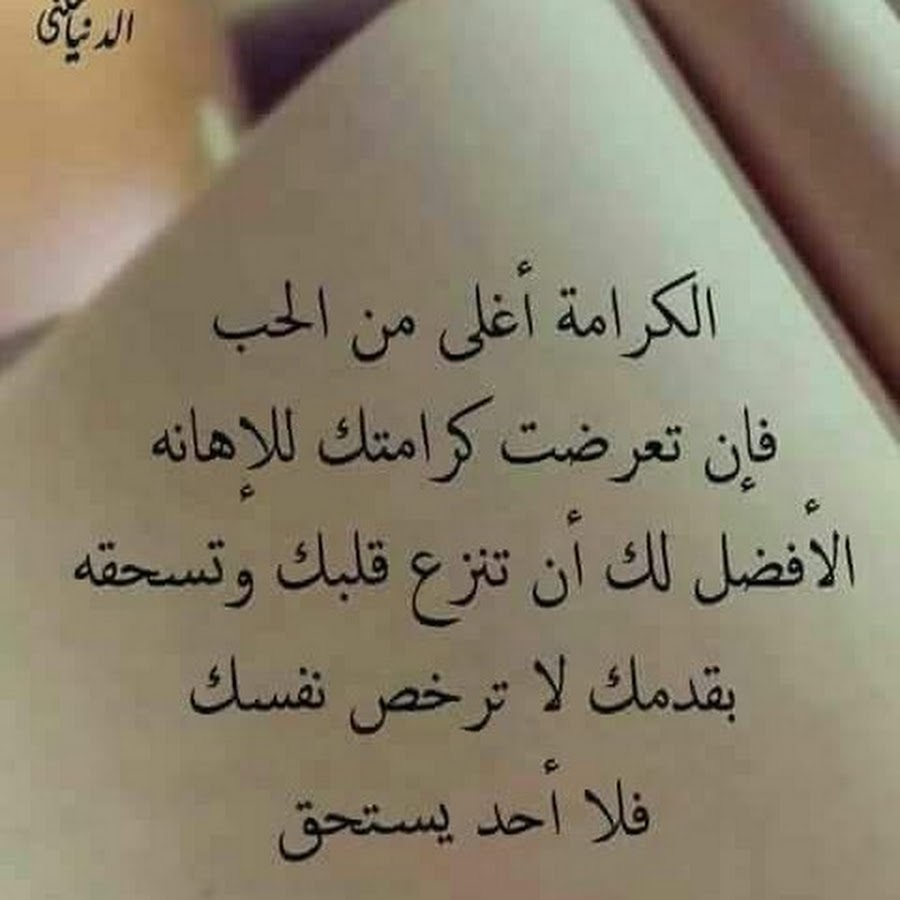 الدنيا
الكرامة أغلى من الحب
فإن تعرضت كرامتك للإهانه
الأفضل لك أن تنزع قلبك وتسحقه
بقدمك لا ترخص نفسك
فلا أحد يستحق